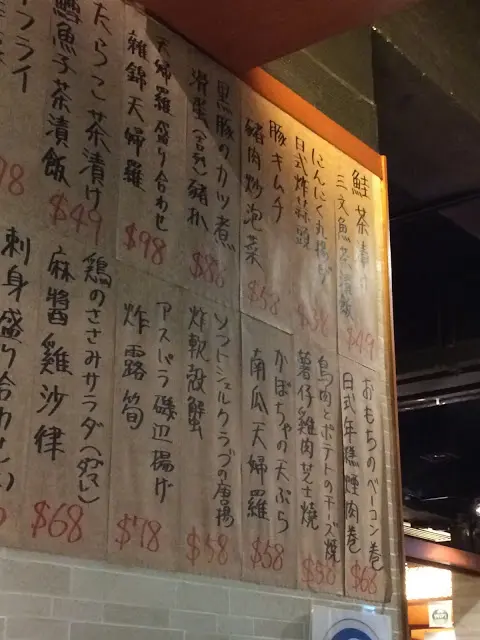 鮭茶漬け
三文魚茶漬飯
$49
にんにく丸揚げ
日式炸蒜頭
$38
豚キムチ
豬肉炒泡菜
$58
黒豚のカツ煮
滑蛋(合気)豬扒
$88
天婦羅盛り合わせ
雜錦天婦羅
$98
たらこ茶漬け
鱈魚子茶漬飯
$49
フライ
98
おもちのベーコン巻
日式年糕煙肉卷
$68
鳥肉とポテトのチーズ焼
薯仔雞肉芝士燒
$58
かぼちゃの天ぷら
南瓜天婦羅
$58
ソフトシェルクラブの唐揚
炸軟殼蟹
$58
アスパラ磯辺揚げ
炸露筍
$78
鶏のささみサラダ
麻醬雞沙律
$68
刺身盛り合わせ